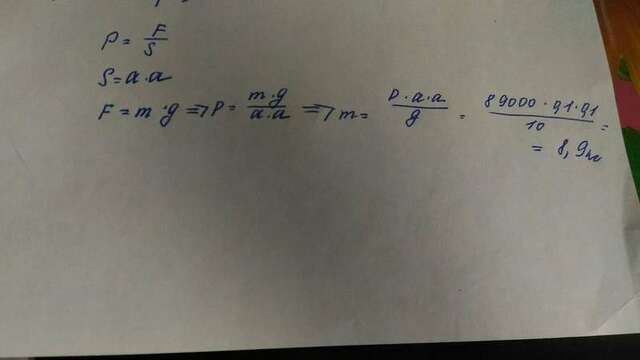 P = F/S
S = a·a
F = m·g => P = m·g/a·a => m = P·a·a/g = 89000·0,1·0,1/10 =
= 8,9 кг